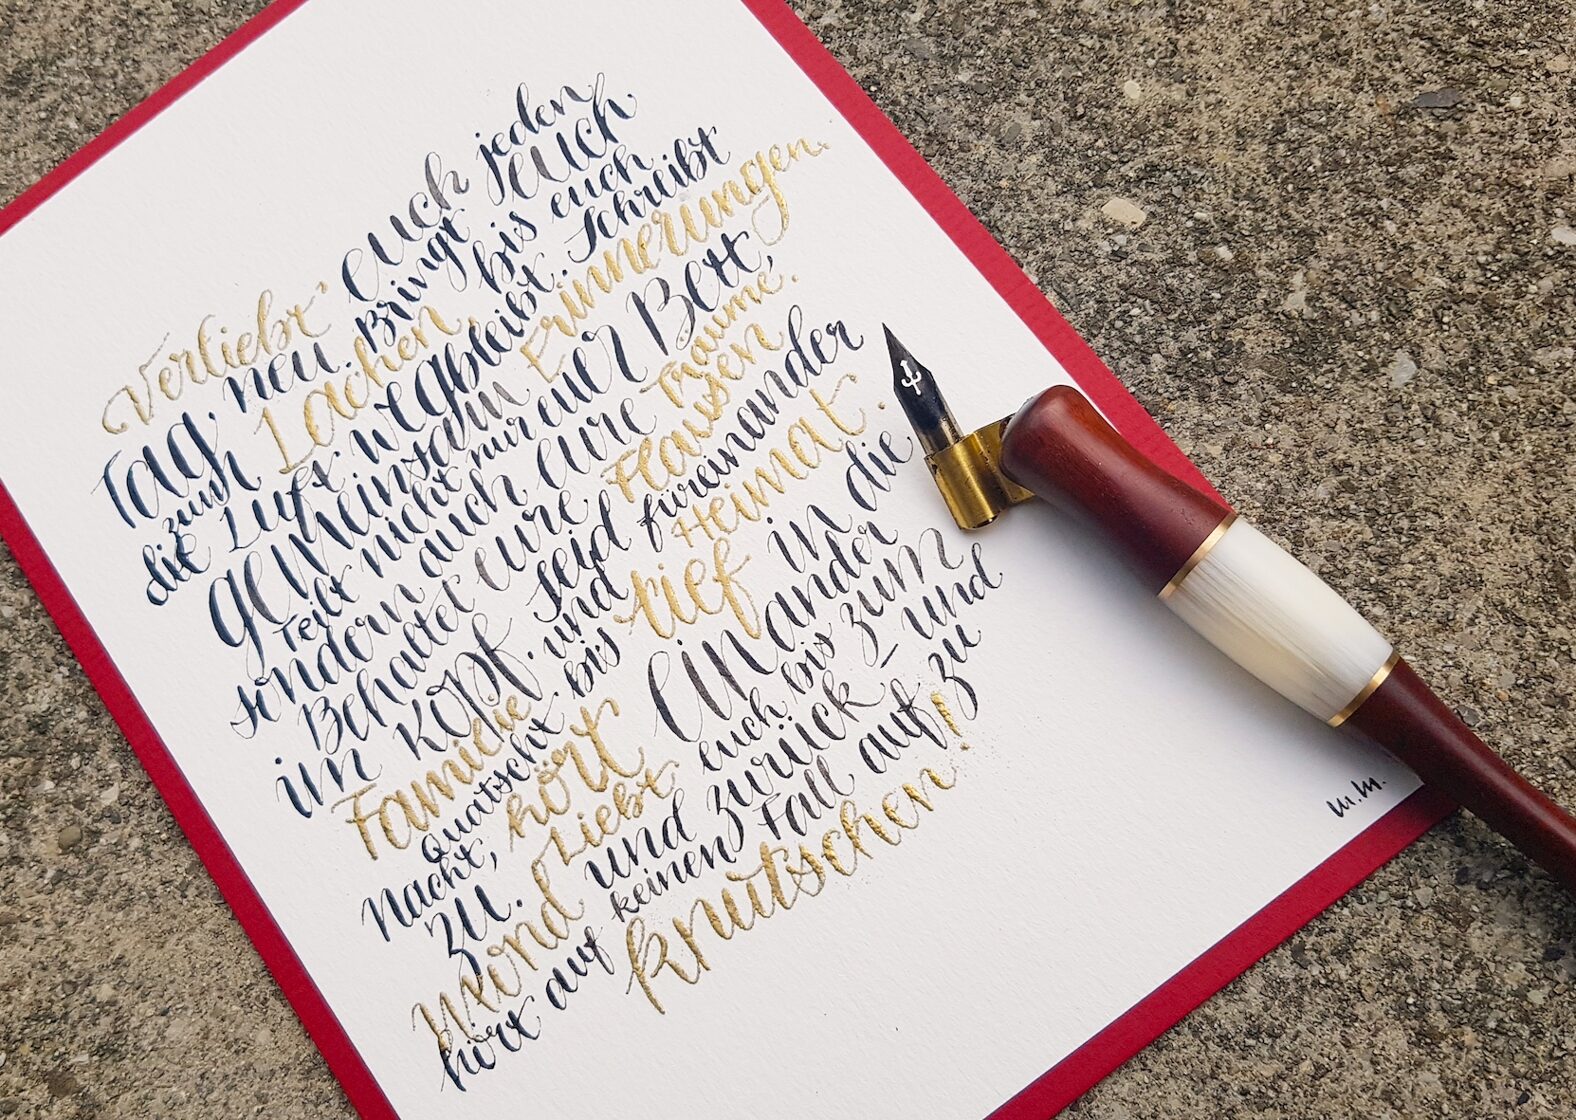 Verliebt' euch jeden
Tag, neu. Bringt euch
zum Lachen, bis euch
die Luft wegbleibt. Schreibt
gemeinsam Erinnerungen.
Teilt nicht nur euer Bett,
sondern auch eure Träume.
Behaltet eure Flausen
im Kopf. Seid füreinander
Familie und Heimat.
Quatscht bis tief in die
Nacht, hört einander
zu. Liebt euch bis zum
Mond und zurück _ und
hört auf keinen Fall auf zu
knutschen!
M.M.